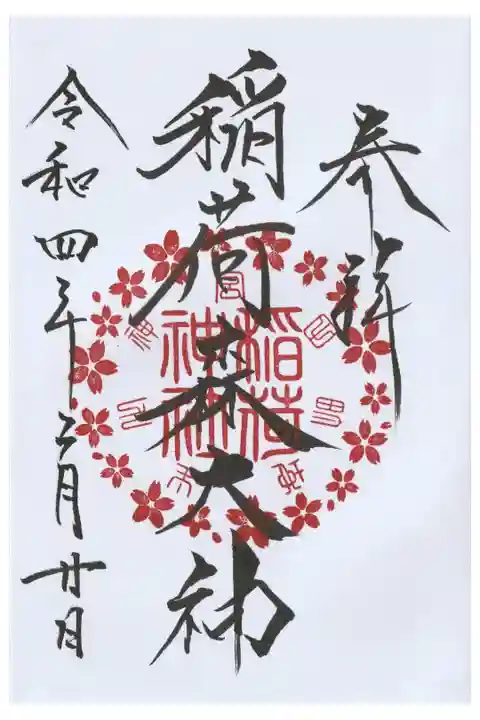 奉拝
稲荷森大神
稲荷
神社
令和四年三月廿日